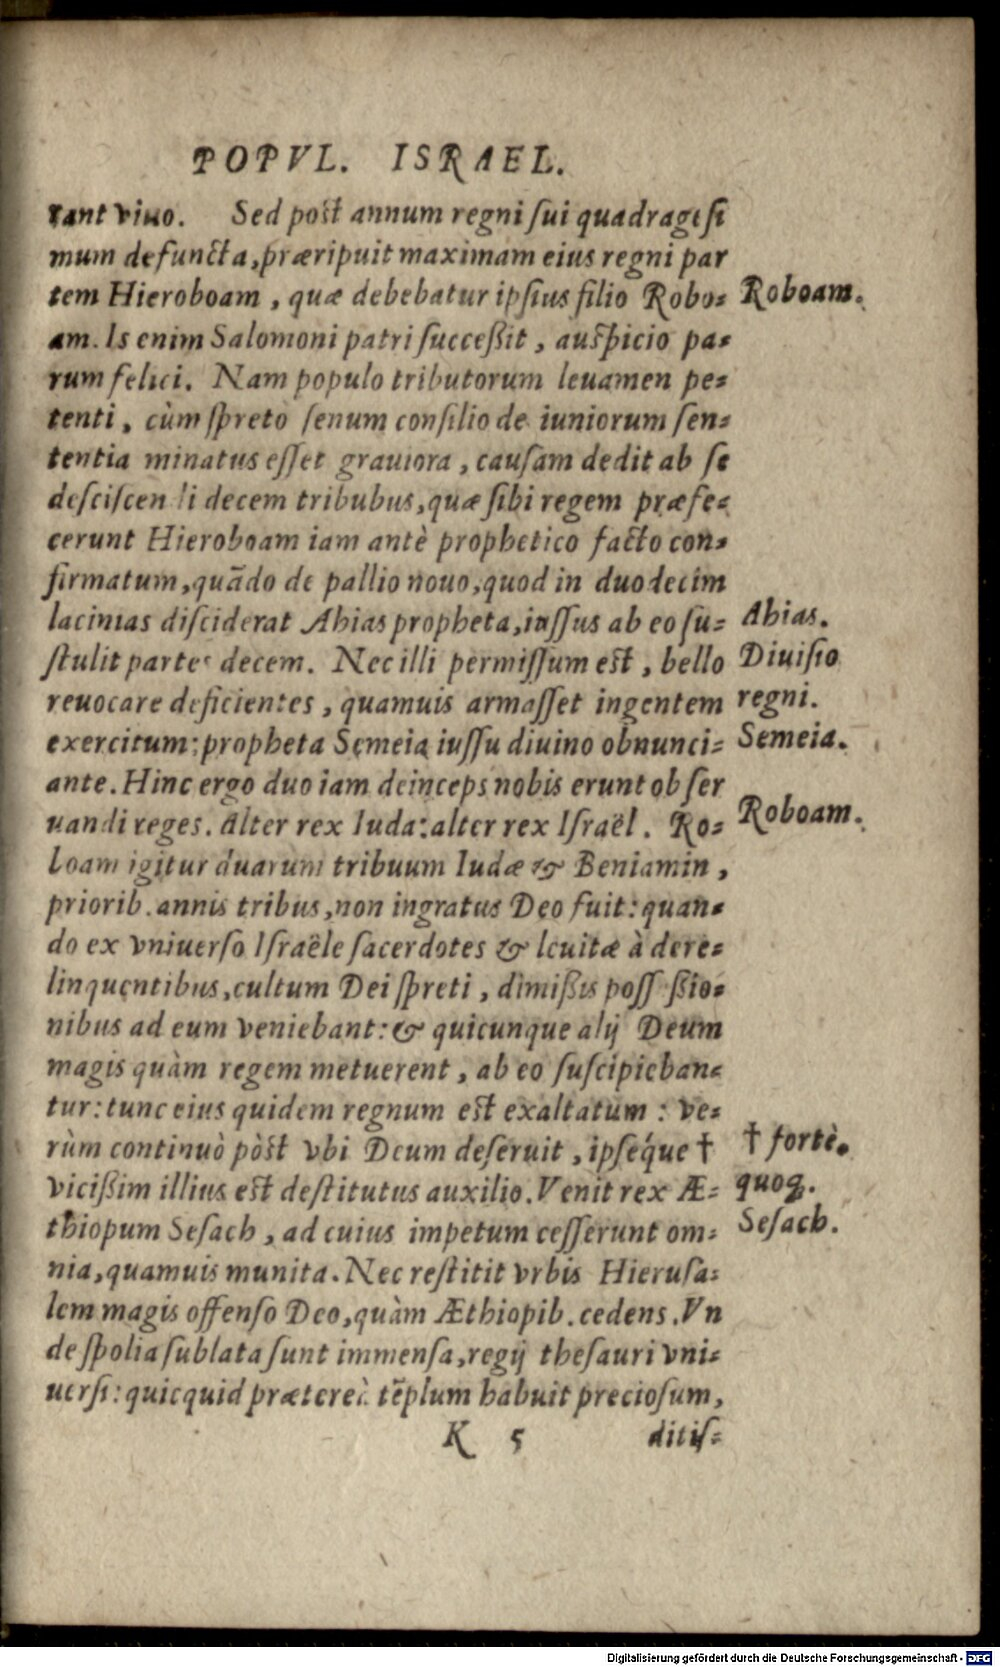 POPVL. ISRAEL.
tant viuo. Sed poſt annum regni ſui quadrageſi
mum defuncta, præripuit maximam eius regni par
tem Hieroboam, quæ debebatur ipſius filio Robo⸗
Roboam.
am. Is enim Salomoni patri ſucceßit, auſpicio pa⸗
rum felici. Nam populo tributorum leuamen pe⸗
tenti, cùm ſpreto ſenum conſilio de iuniorum ſen⸗
tentia minatus eſſet grauiora, cauſam dedit ab ſe
deſciſcen di decem tribubus, quæ ſibi regem præfe⸗
cerunt Hieroboam iam antè prophetico facto con⸗
firmatum, quādo de pallio nouo, quod in duodecim
lacinias diſciderat Ahias propheta, iuſſus ab eo ſu⸗
Ahias.
ſtulit partes decem. Nec illi permiſſum eſt, bello
Diuiſio
reuocare deficientes, quamuis armaſſet ingentem
regni.
exercitum: propheta Semeia iuſſu diuino obnunci⸗
Semeia.
ante. Hinc ergo duo iam deinceps nobis erunt obſer
uandi reges. Alter rex Iuda: alter rex Iſraël. Ro⸗
Roboam.
boam igitur duarum tribuum Iudæ & Beniamin,
priorib. annis tribus, non ingratus Deo fuit: quan⸗
do ex vniuerſo Iſraële ſacerdotes & leuitæ à dere⸗
linquentibus, cultum Dei ſpreti, dimißis poſſ ßio⸗
nibus ad eum veniebant: & quicunque alij Deum
magis quàm regem metuerent, ab eo ſuſcipieban⸗
tur: tunc eius quidem regnum eſt exaltatum: ve⸗
rùm continuò pòſt vbi Deum deſeruit, ipſéque †
† fortè.
vicißim illius eſt deſtitutus auxilio. Venit rex Æ⸗
quoq.
thiopum Seſach, ad cuius impetum ceſſerunt om⸗
Seſach.
nia, quamuis munita. Nec reſtitit vrbis Hieruſa⸗
lem magis offenſo Deo, quàm Æthiopib. cedens. Vn
de ſpolia ſublata ſunt immenſa, regij theſauri vni⸗
uerſi: quicquid prætereà tēplum habuit precioſum,
K 5 ditiſ⸗
Digitalisierung gefördert durch die Deutsche Forschungsgemeinschaft - DFG